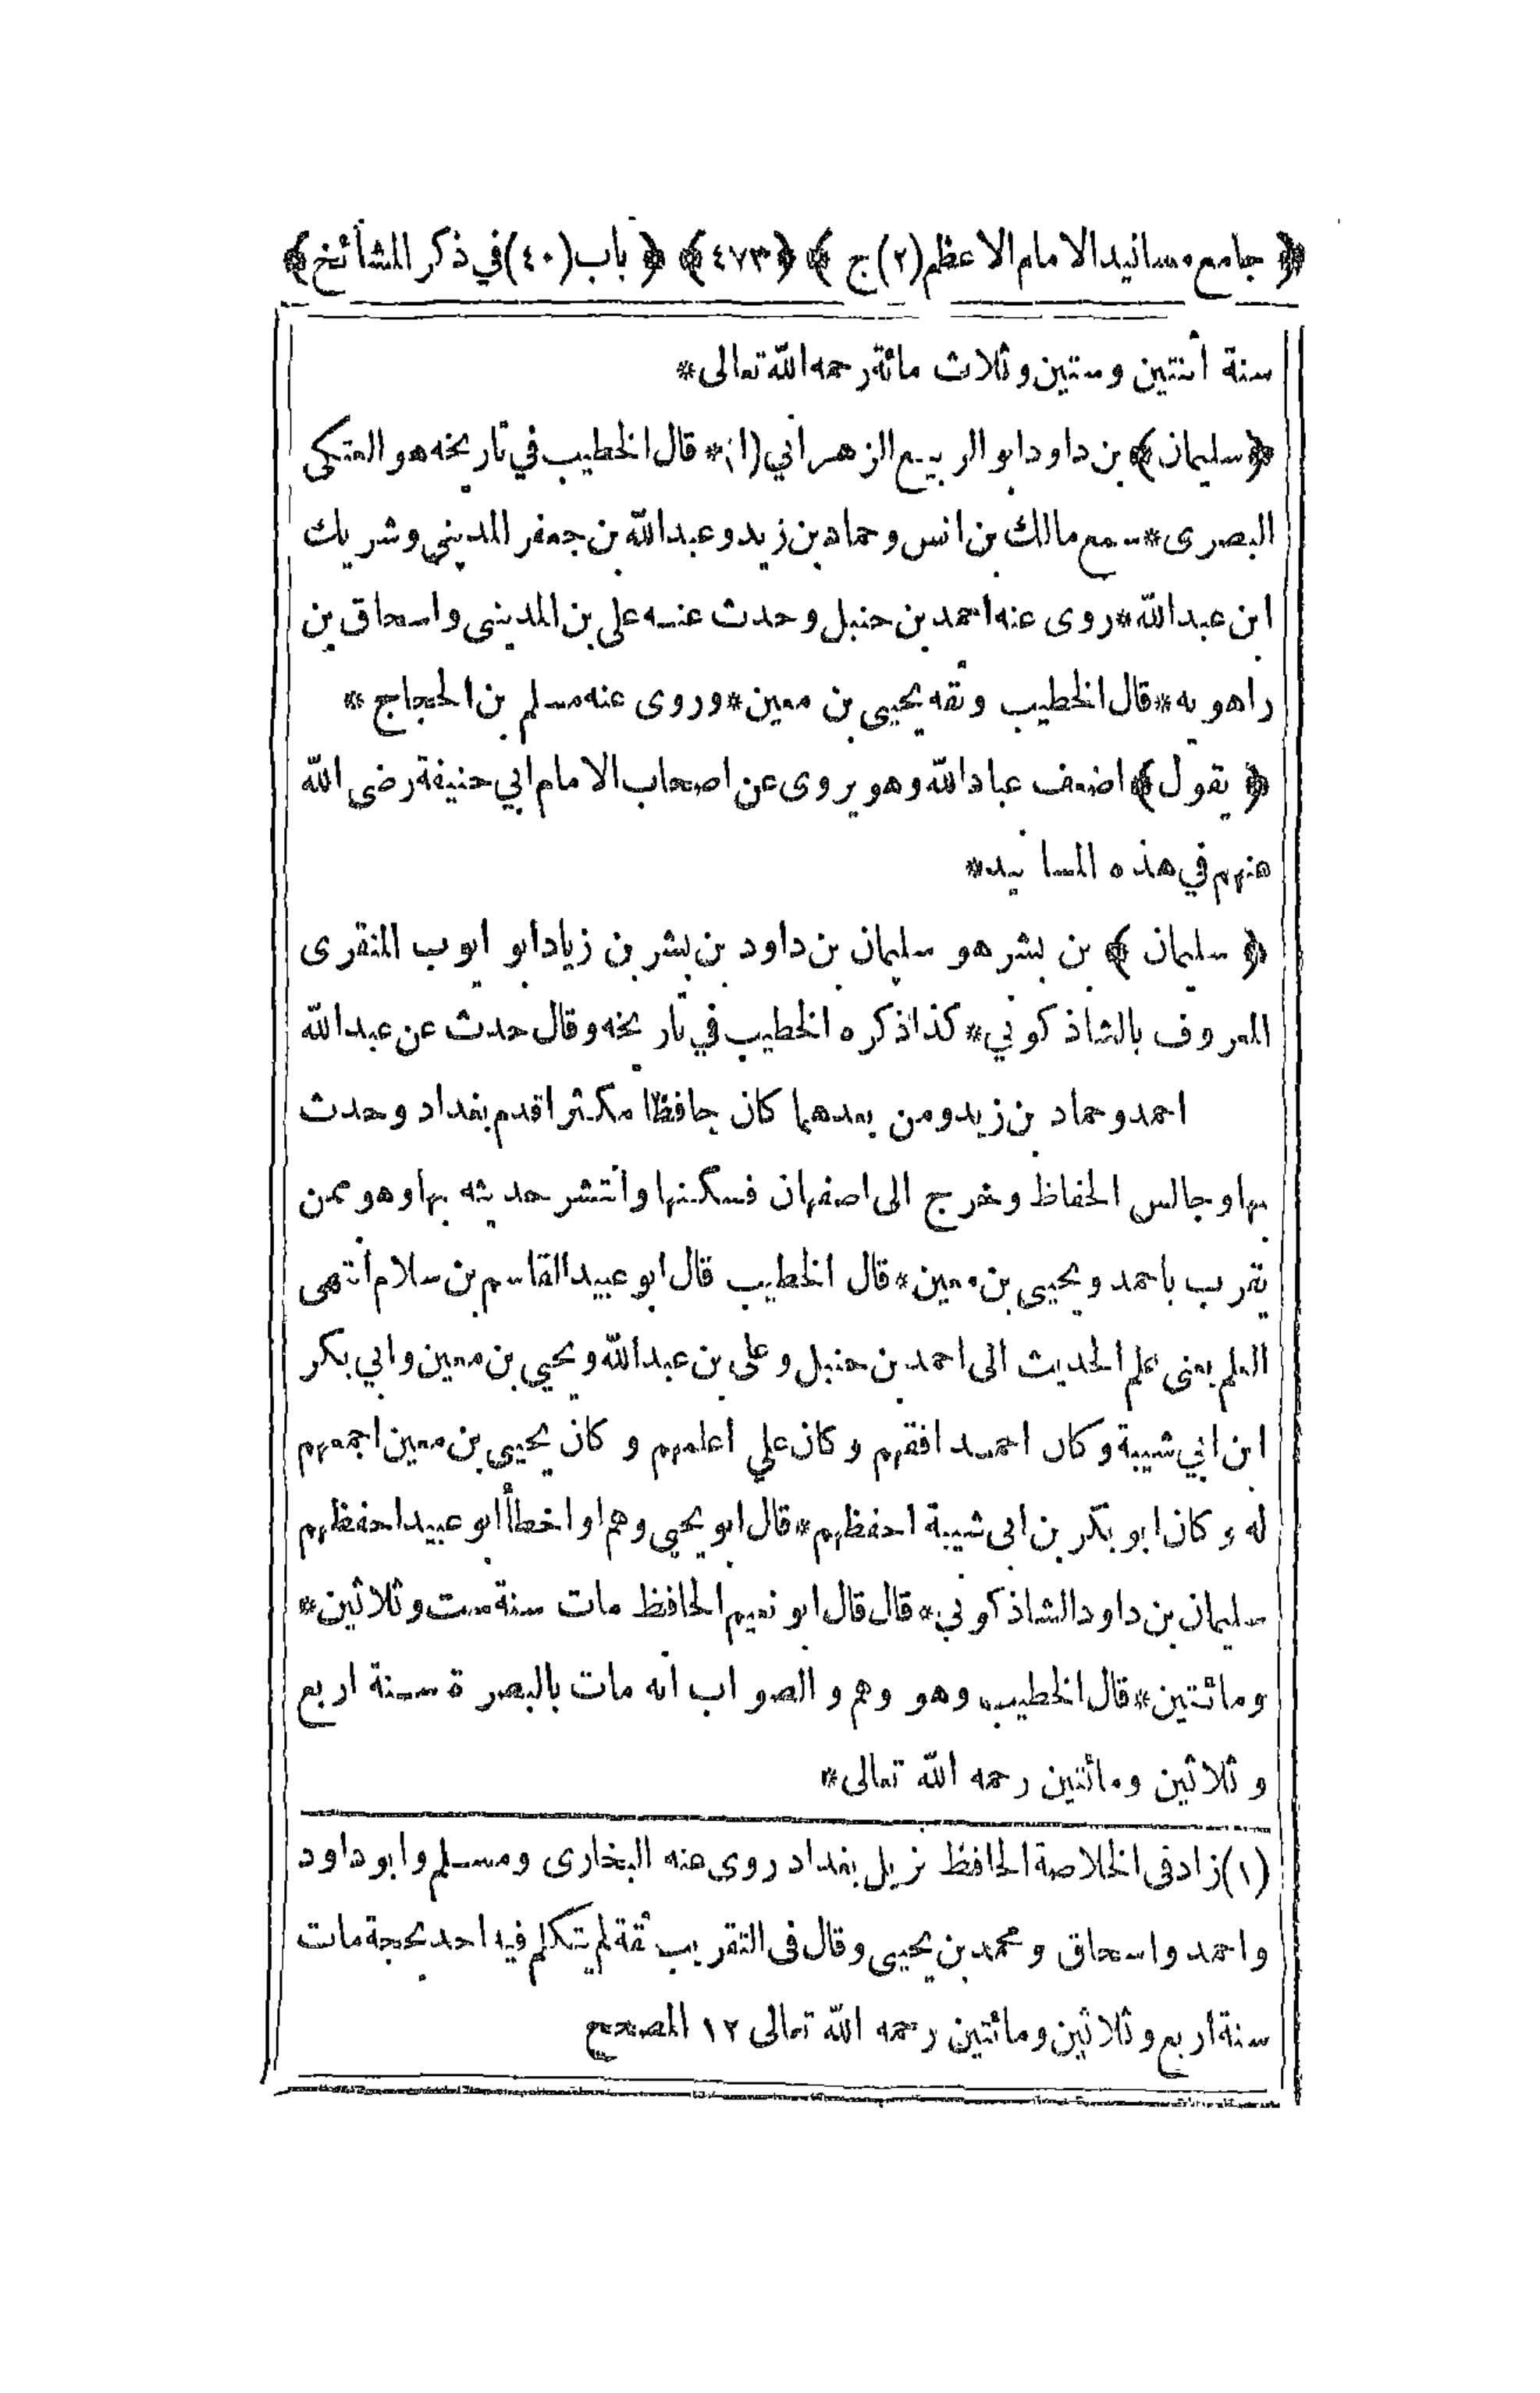 ﴿ جامع مسانيد الامام الاعظم (٢) ج ﴾ ﴿ ٤٧٣ ﴾ ﴿ باب (٤٠) في ذكر المشائخ ﴾
سنة اثنتين وستين وثلاث مائة رحمه الله تعالى *
﴿ سليمان ﴾ بن داود ابو الربيع الزهراني (١) * قال الخطيب في تاريخه هو العتكى
البصرى * سمع مالك بن انس وحماد بن زيد وعبد الله بن جعفر المديني وشريك
ابن عبد الله * روى عنه احمد بن حنبل وحدث عنه على بن المدينى واسحاق بن
راهويه * قال الخطيب وثقه يحيى بن معين * وروى عنه مسلم بن الحجاج *
﴿ يقول ﴾ اضعف عباد الله وهو يروى عن اصحاب الامام ابي حنيفة رضى الله
عنهم في هذه المسانيد *
﴿ سليمان ﴾ بن بشر هو سليمان بن داود بن بشر بن زياد ابو ايوب المنقرى
المعروف بالشاذكوني * كذا ذكره الخطيب في تاريخه وقال حدث عن عبد الله
احمد وحماد بن زيد ومن بعدهما كان حافظا مكثرا قدم بغداد وحدث
بها وجالس الحفاظ وخرج الى اصفهان فسكنها وانتشر حديثه بها وهو ممن
يقرب باحمد ويحيى بن معين * قال الخطيب قال ابو عبيد القاسم بن سلام انتهى
العلم يعنى علم الحديث الى احمد بن حنبل وعلى بن عبد الله ويحيي بن معين وابي بكر
ابن ابي شيبة وكان احمد افقههم وكان علي اعلمهم وكان يحيى بن معين اجمعهم
له وكان ابو بكر بن ابى شيبة احفظهم * قال ابو يحيى وهم او اخطأ ابو عبيد احفظهم
سليمان بن داود الشاذكوني * قال قال ابو نعيم الحافظ مات سنة ست وثلاثين *
ومائتين * قال الخطيب وهو وهم والصواب انه مات بالبصرة سنة اربع
وثلاثين ومائتين رحمه الله تعالى *
(١) زاد فى الخلاصة الحافظ نزيل بغداد روى عنه البخارى ومسلم وابو داود
واحمد واسحاق ومحمد بن يحيى وقال فى التقريب ثقة لم يتكلم فيه احد بحجة مات
سنة اربع وثلاثين ومائتين رحمه الله تعالى ١٢ المصحح